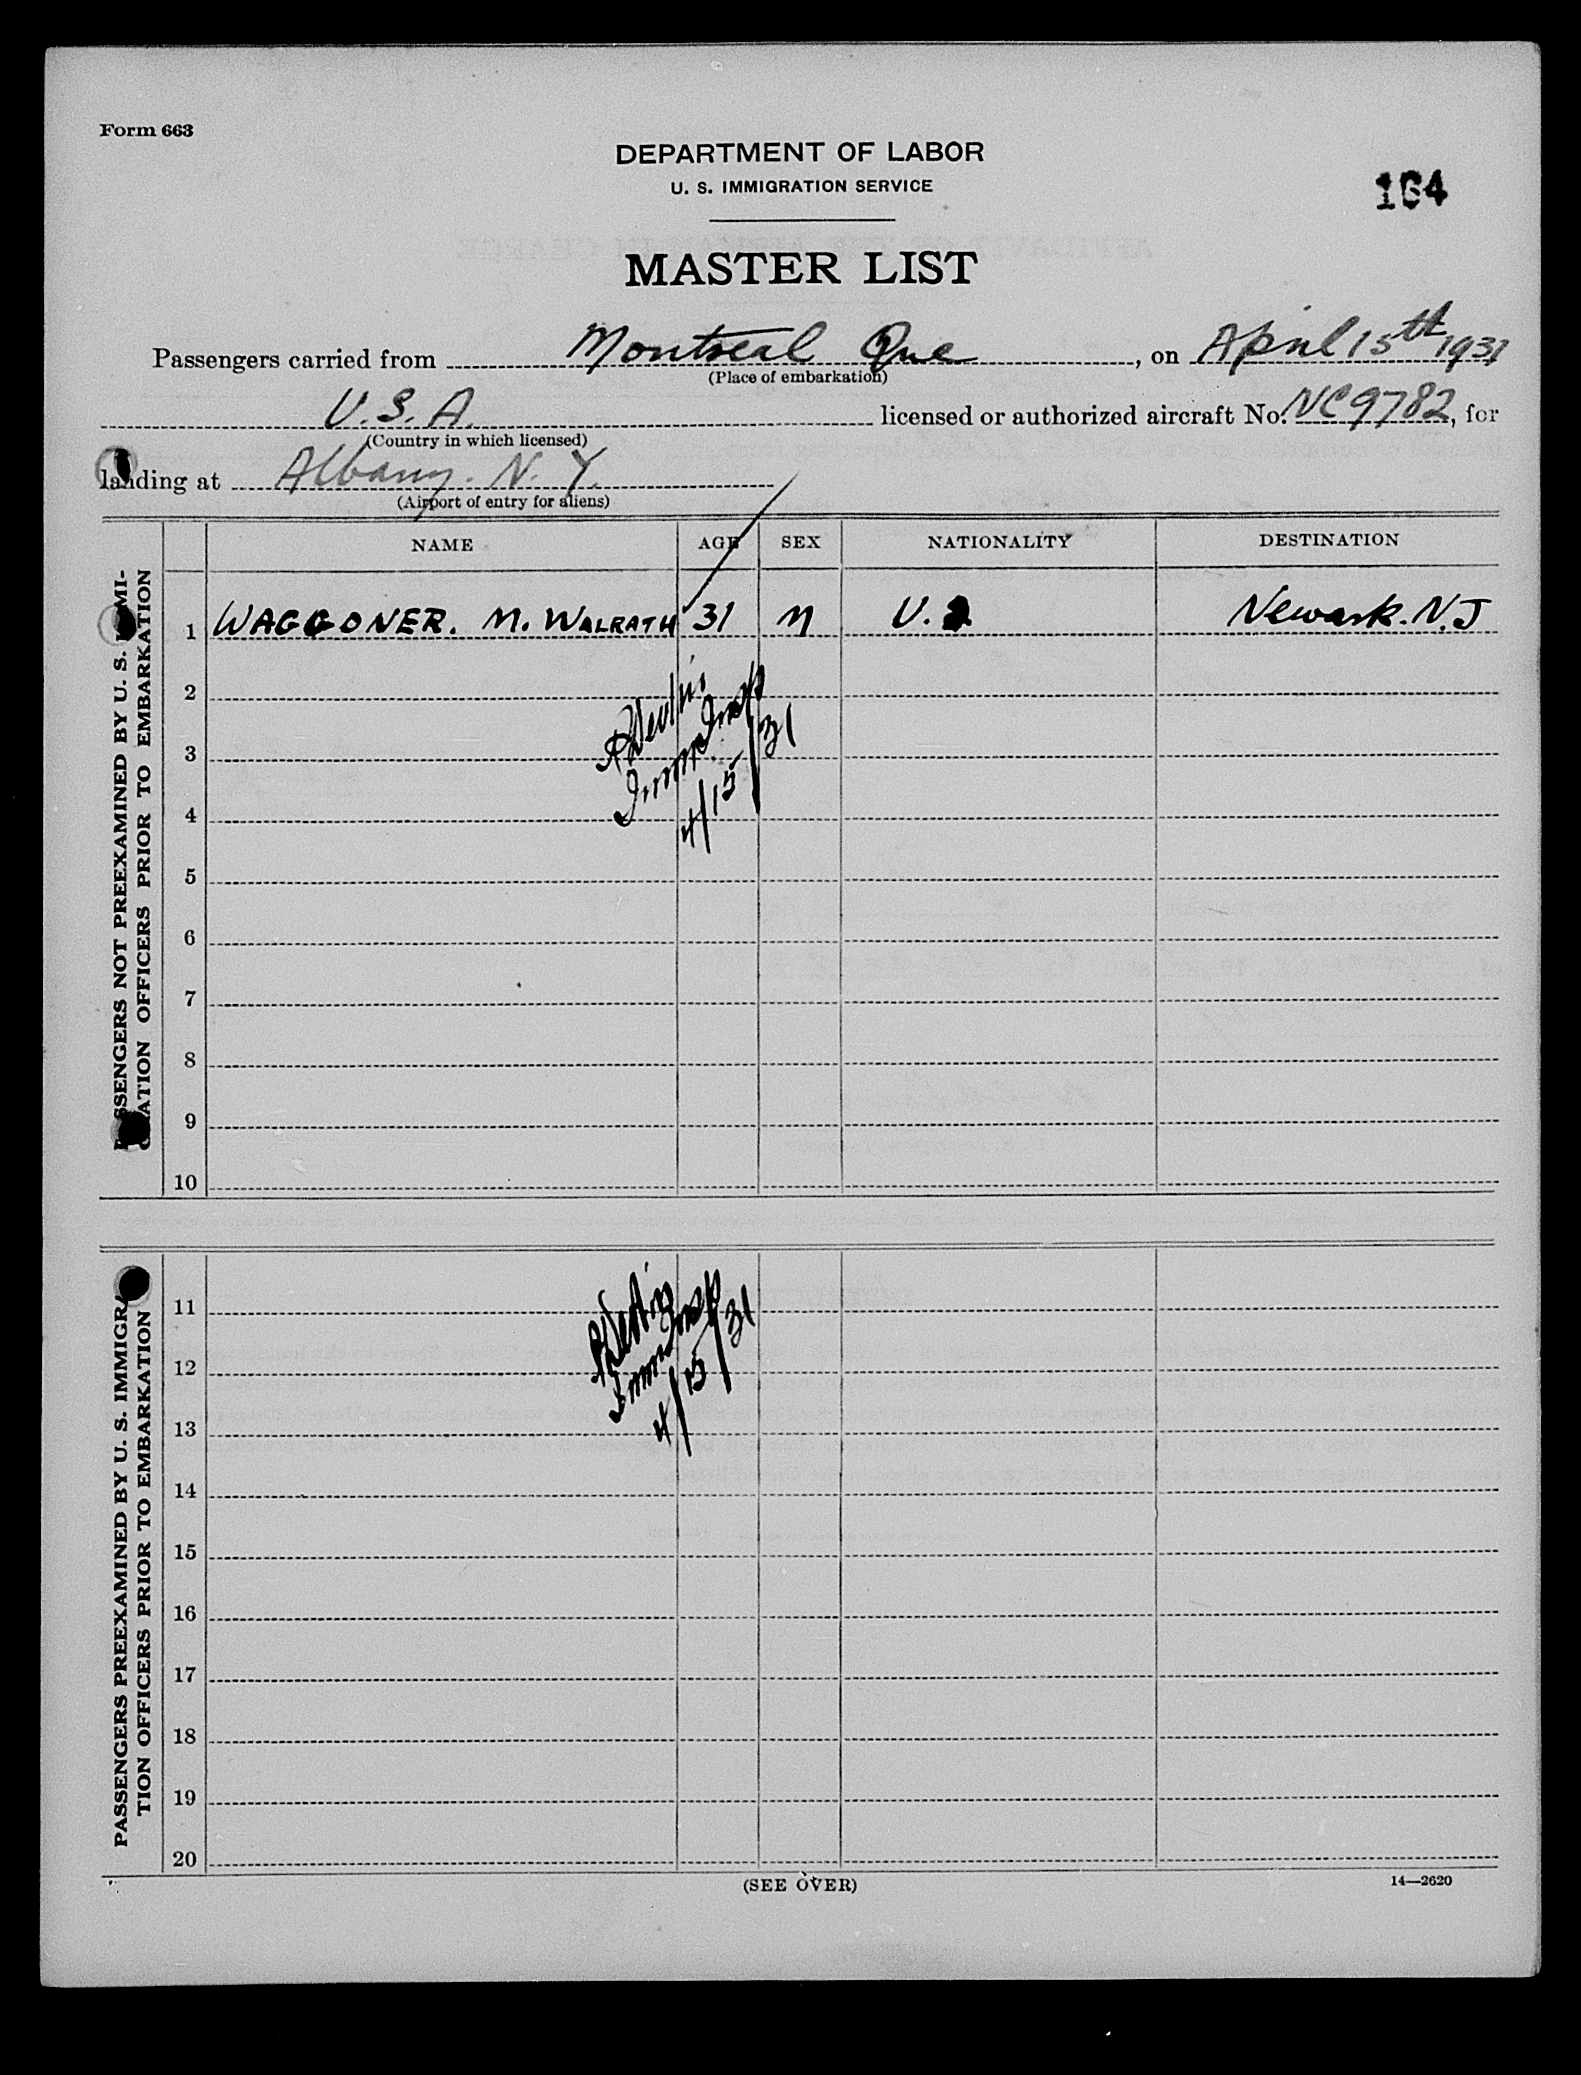 Form 663
DEPARTMENT OF LABOR
U. S. IMMIGRATION SERVICE
164
MASTER LIST
Passengers carried from Montreal Que, on April 15th 1931
(Place of embarkation)
U.S.A. licensed or authorized aircraft No. NC9782, for
(Country in which licensed)
landing at Albany. N. Y.
(Airport of entry for aliens)
NAME AGE SEX NATIONALITY DESTINATION
PASSENGERS NOT PREEXAMINED BY U. S. IMMI-
GRATION OFFICERS PRIOR TO EMBARKATION
1 WAGGONER. M. WALRATH 31 M U.S. Newark. N.J
2
3
4
Immig Insp
4/15/31
5
6
7
8
9
10
PASSENGERS PREEXAMINED BY U. S. IMMIGRA-
TION OFFICERS PRIOR TO EMBARKATION
11
12
13
Immig Insp
4/15/31
14
15
16
17
18
19
20
(SEE OVER)
14—2620